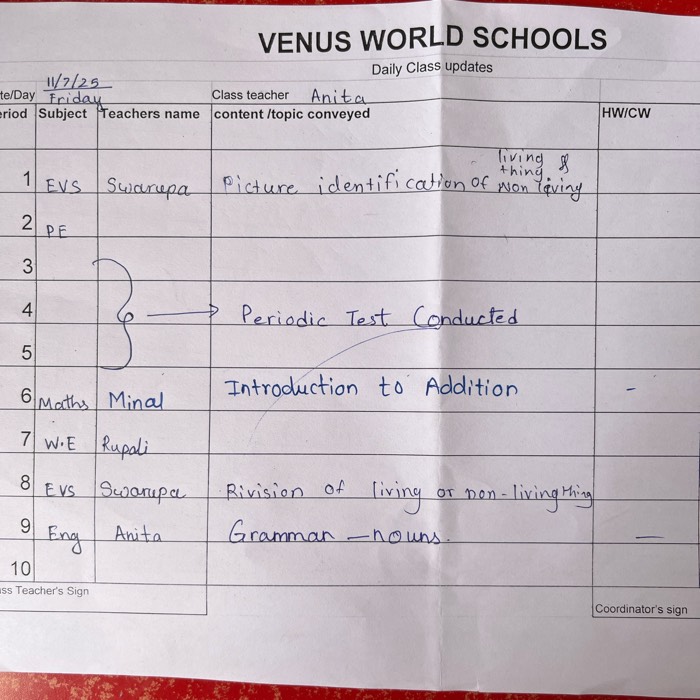 VENUS WORLD SCHOOLS
Daily Class updates
te/Day 11/7/25 Friday Class teacher Anita
eriod Subject Teachers name content /topic conveyed HW/CW
1 EVS Swarupa Picture identification of living & thing Non living
2 PE
3
4 → Periodic Test Conducted
5
6 Maths Minal Introduction to Addition -
7 W.E Rupali
8 EVS Swarupa Rivision of living or non-living thing
9 Eng Anita Grammar — nouns. —
10
ss Teacher's Sign
Coordinator's sign